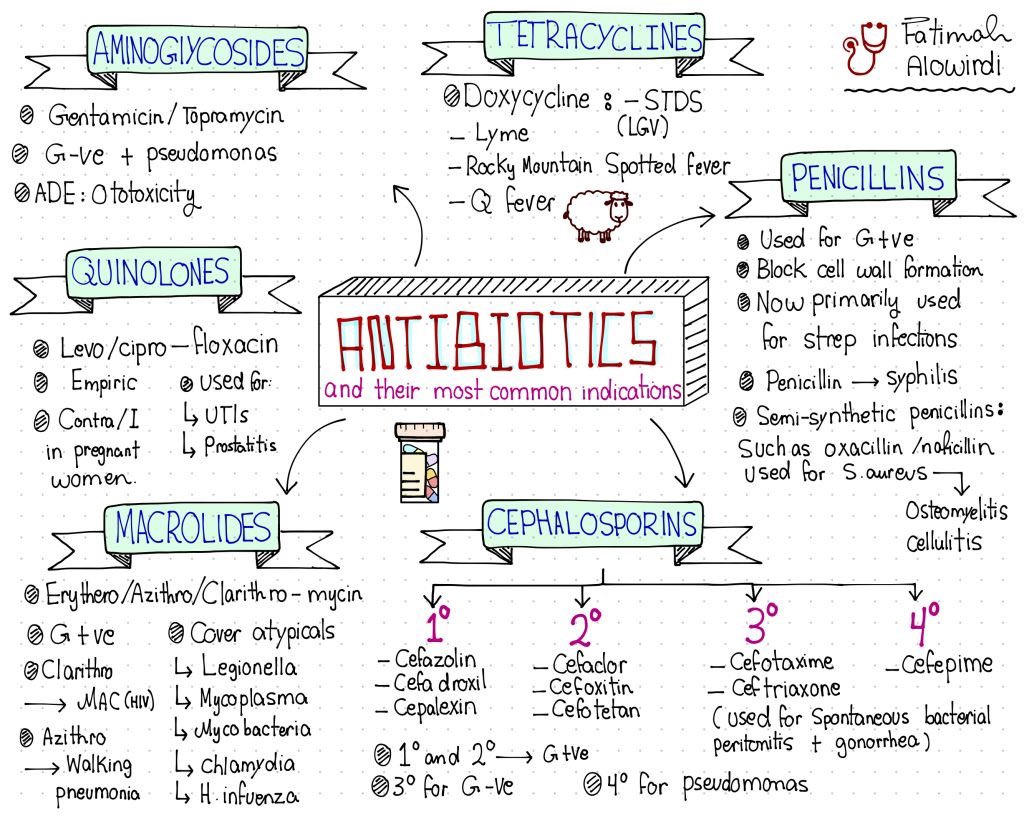 AMINOGLYCOSIDES
Gentamicin/Topramycin
G-ve + pseudomonas
ADE: Ototoxicity
TETRACYCLINES
Doxycycline : - STDS
(LGV)
- Lyme
- Rocky Mountain Spotted fever
- Q fever
Fatimah
Alowirdi
PENICILLINS
Used for G+ve
Block cell wall formation
Now primarily used
for strep infections
Penicillin → syphilis
Semi-synthetic penicillins:
Such as oxacillin/naficillin
used for S.aureus
Osteomyelitis
cellulitis
QUINOLONES
Levo/cipro - floxacin
Empiric
Contra/I
in pregnant
women.
used for:
↳ UTIs
↳ Prostatitis
ANTIBIOTICS
and their most common indications
MACROLIDES
Erythero/Azithro/Clarithro-mycin
G+ve
Clarithro
→ MAC (HIV)
Azithro
→ Walking
pneumonia
Cover atypicals
↳ Legionella
↳ Mycoplasma
↳ Mycobacteria
↳ Chlamydia
↳ H.infuenza
CEPHALOSPORINS
1°
- Cefazolin
- Cefadroxil
- Cepalexin
2°
- Cefaclor
- Cefoxitin
- Cefotetan
3°
- Cefotaxime
- Ceftriaxone
(used for Spontaneous bacterial
peritonitis + gonorrhea)
4°
- Cefepime
1° and 2° → G+ve
3° for G-ve
4° for pseudomonas